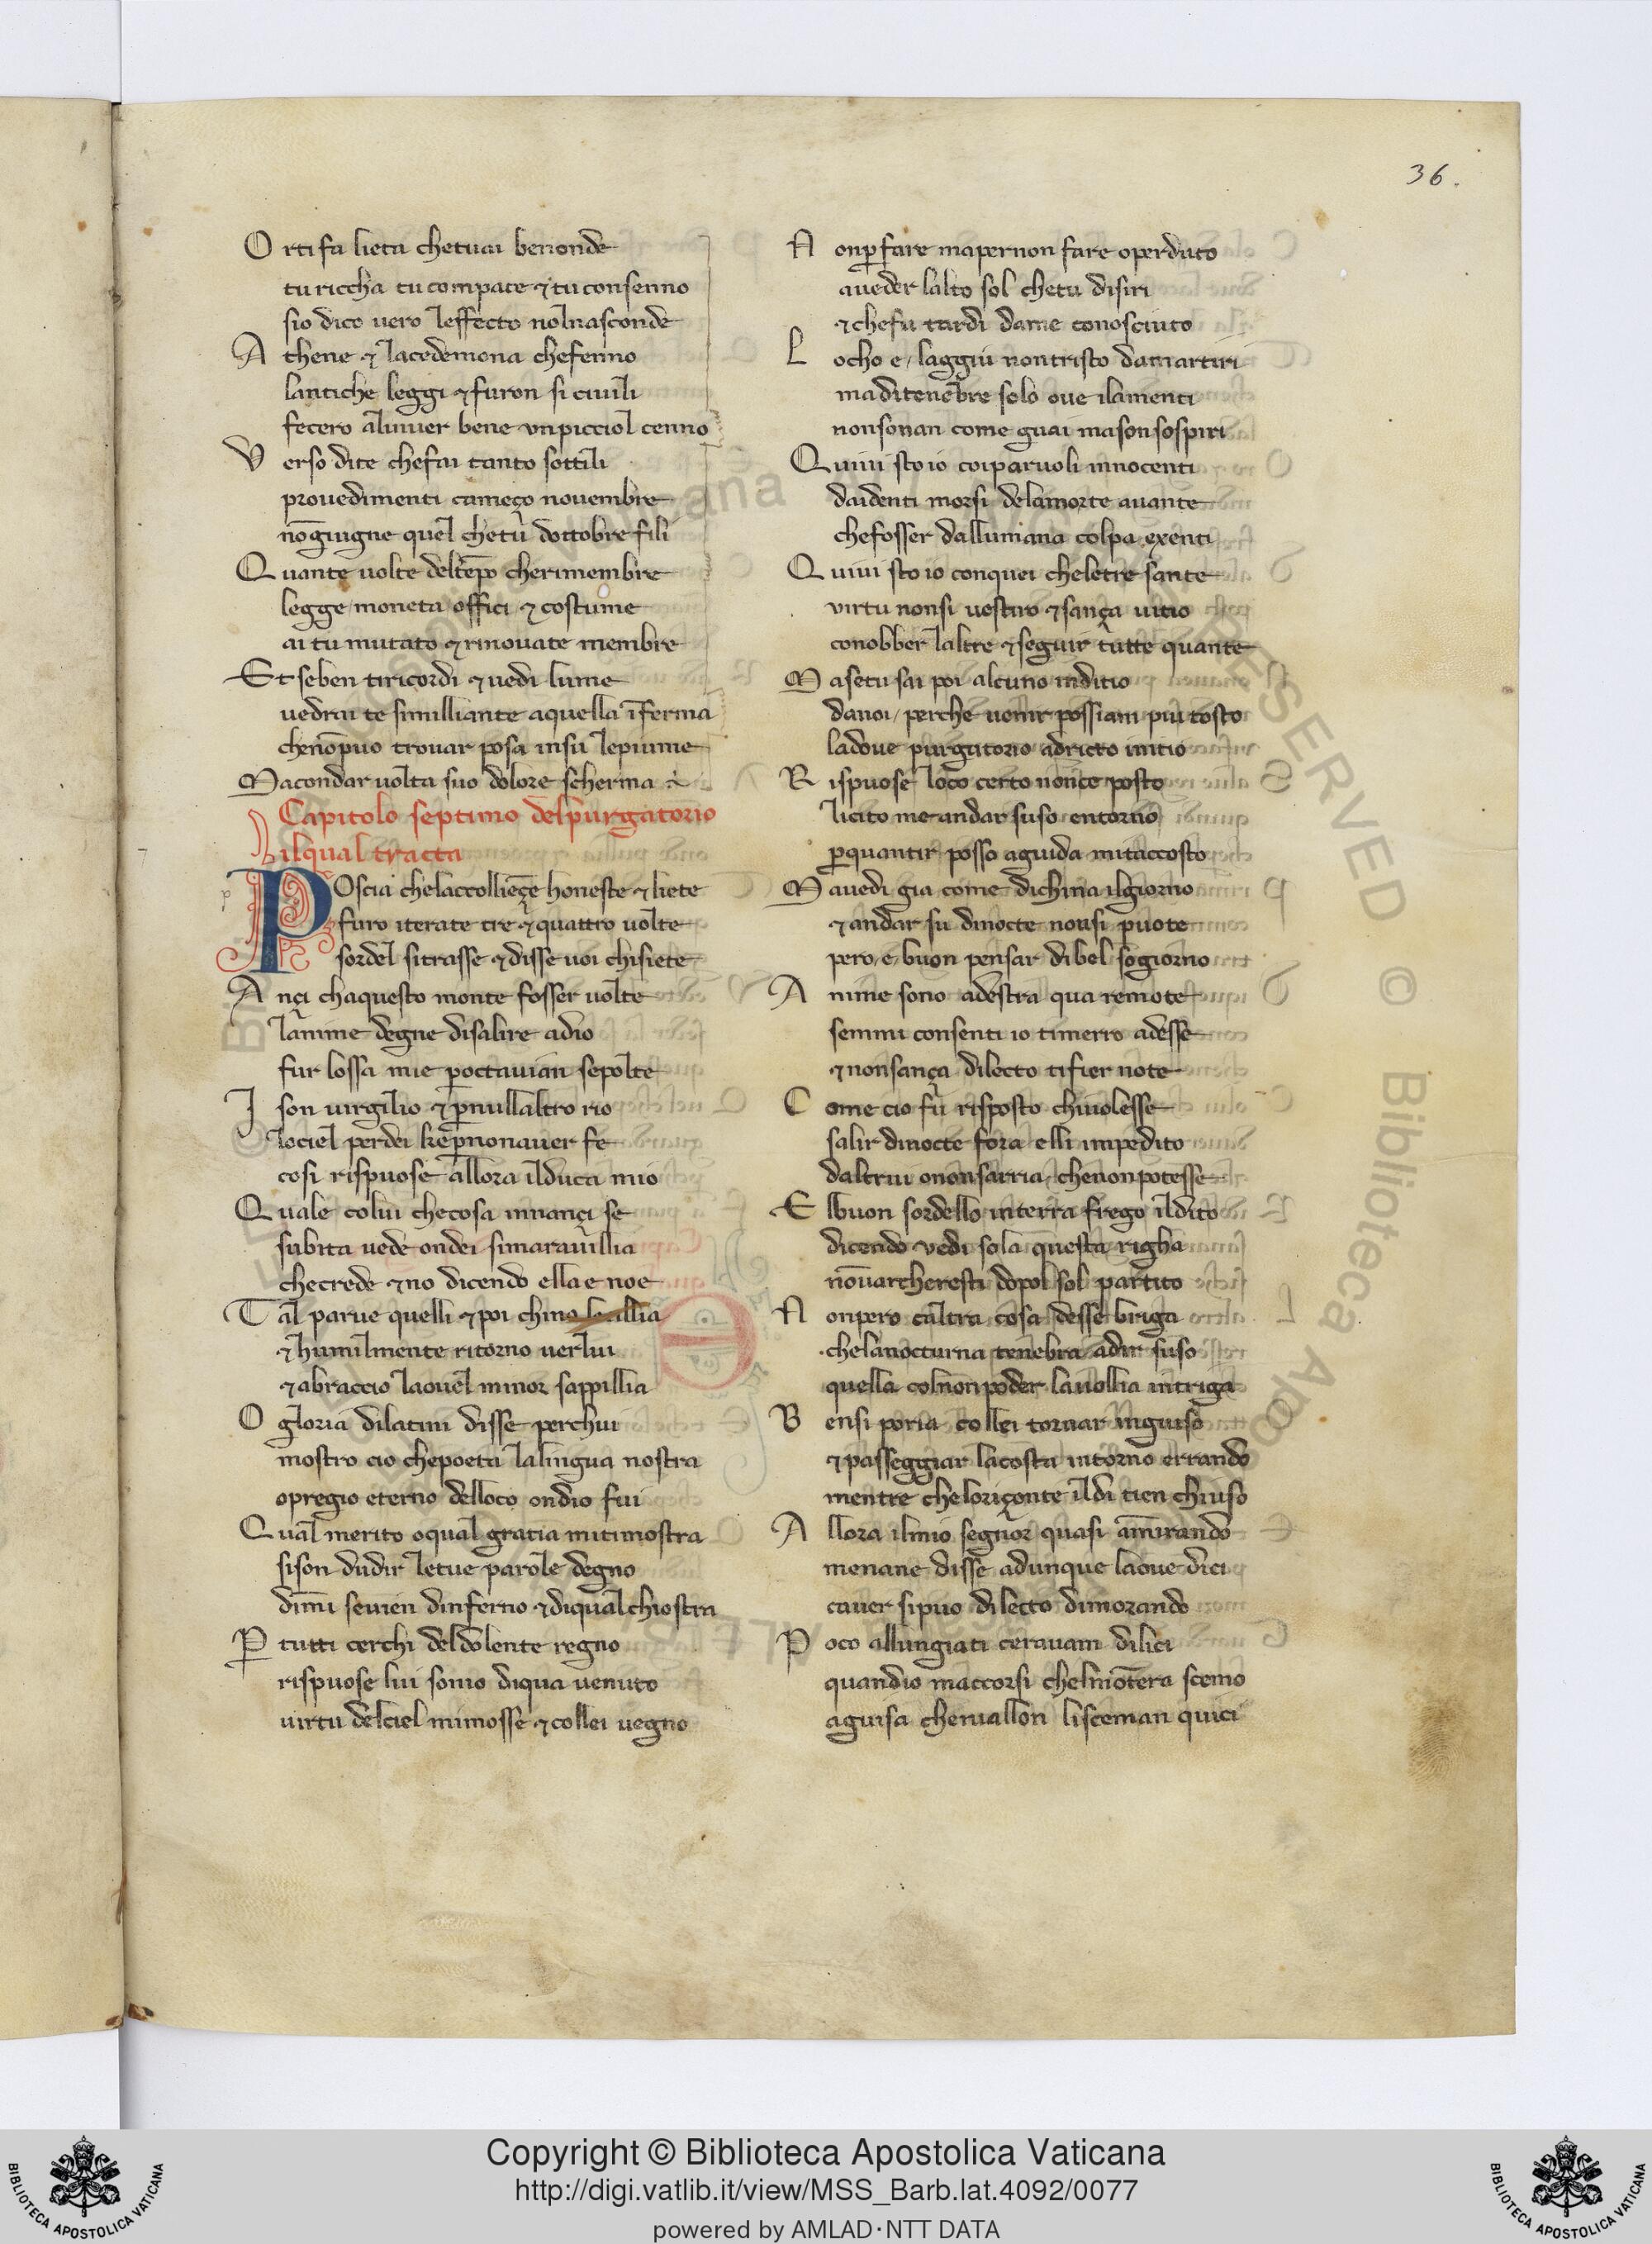 36.
O rti fa lieta chetuai benonde
tu riccha tu compace ⁊ tu consenno
sio dico uero leffecto nolnasconde
A thene ⁊ lacedemona chefenno
lantiche leggi ⁊ furon si ciuili
fecero aluiuer bene vnpicciol cenno
V erso dite chefai tanto sottili
prouedimenti cameço nouembre
nō giugne quel chetu dottobre fili
Q uante uolte deltēpo cherimembre
legge moneta offici ⁊ costume
ai tu mutato ⁊ rinouate membre
Et seben tiricordi ⁊ uedi lume
uedrai te simalliante aquella īferma
chenōpuo trouar posa insu lepiume
Macondar uolta suo dolore scherma
Capitolo septimo delpurgatorio
ilqual tracta
POscia chelaccollieçe honeste ⁊ liete
furo iterate tre ⁊ quattro uolte
sordel sitrasse ⁊ disse uoi chisiete
A nçi chaquesto monte fosser uolte
lanime degne disalire adio
fur lossa mie p̄ octauian sepolte
I son uirgilio ⁊ p̄ nullaltro rio
lociel perdei ke p̄ nonauer fe
cosi rispuose allora ilduca mio
Q uale colui checosa innançi se
subita uede ondei simarauillia
checrede ⁊ no dicendo ella e noe
T al parue quelli ⁊ poi chino
⁊ humilmente ritorno uerlui
⁊ abraccio laouel minor sappillia
O gloria dilatini disse perchui
mostro cio chepotea lalingua nostra
opregio eterno delloco ondio fui
Q ual merito oqual gratia mitimostra
sison dudir letue parole degno
dimi seuien dinferno ⁊ diqual chiostra
P̄ tutti cerchi deldolente regno
rispuose lui sonio diqua uenuto
uirtu delciel mimosse ⁊ collei uegno
N onp̄ fare mapernon fare operduto
aueder lalto sol chetu disiri
⁊ chefu tardi dame conosciuto
L ocho e / laggiu nontristo damartiri
maditenebre solo oue ilamenti
nonsonan come guai mason sospiri
Q uiui sto io coiparuoli innocenti
daidenti morsi delamorte auante
chefosser dallumana colpa exenti
Q uiui sto io conquei cheletre sante
virtu nonsi uestiro ⁊ sança uitio
conobber laltre ⁊ seguir tutte quante
M asetu sai poi alcuno inditio
danoi / perche uenir possiam piu tosto
ladoue purgatorio adricto initio
R ispuose loco certo nonce posto
licito me andar suso entorno
p̄ quantir posso aguida mitaccosto
M auedi gia come dichina ilgiorno
⁊ andar su dinocte nonsi puote
pero, e, buon pensar dibel sogiorno
A nime sono adestra qua remote
semmi consenti io timerro adesse
⁊ nonsança dilecto tifier note
C ome cio fu risposto chiuolesse
salir dinocte fora elli impedito
daltrui ononsarria / chenonpotesse
E lbuon sordello interra frego ildito
dicendo vedi sola questa righa
nōuarcheresti dopol sol partito
N onpero caltra cosa desse briga
chelanocturna tenebra adir suso
quella colnonpoder lauollia intriga
B ensi poria collei tornar inguiso
⁊ passeggiar lacosta intorno errando
mentre cheloriçonte ildi tien chiuso
A llora ilmio segnor quasi amirando
menane disse adunque laoue dici
cauer sipuo dilecto dimorando
P oco allungiati cerauam dilici
quandio maccorsi chelmōtera scemo
aguisa cheniuallon lisceman quici
Copyright © Biblioteca Apostolica Vaticana
http://digi.vatlib.it/view/MSS_Barb.lat.4092/0077
powered by AMLAD·NTT DATA
BIBLIOTECA APOSTOLICA VATICANA
BIBLIOTECA APOSTOLICA VATICANA